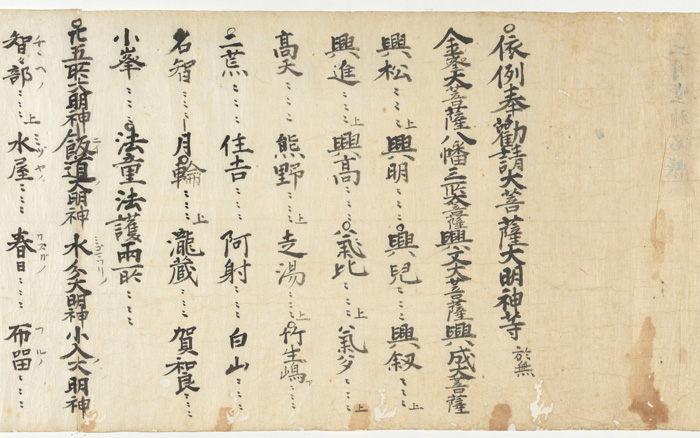 依例奉勸請大菩薩大明神等
金峯大菩薩八幡三所大菩薩興文大菩薩興成大菩薩
興松⋮⋮上興明⋮⋮興兒⋮⋮興叙⋮⋮上
興進⋮⋮上興高⋮⋮氣比⋮⋮上氣多⋮⋮上
高天⋮⋮熊野⋮⋮上走湯⋮⋮上竹生嶋⋮⋮
二荒⋮⋮住吉⋮⋮阿射⋮⋮白山⋮⋮
名智⋮⋮月輪⋮⋮上瀧蔵⋮⋮賀和良⋮⋮
小峯⋮⋮法童法護兩所⋮⋮
五所大明神飯道大明神水分大明神小入大明神
智々部⋮⋮上水屋⋮⋮春日⋮⋮布留⋮⋮